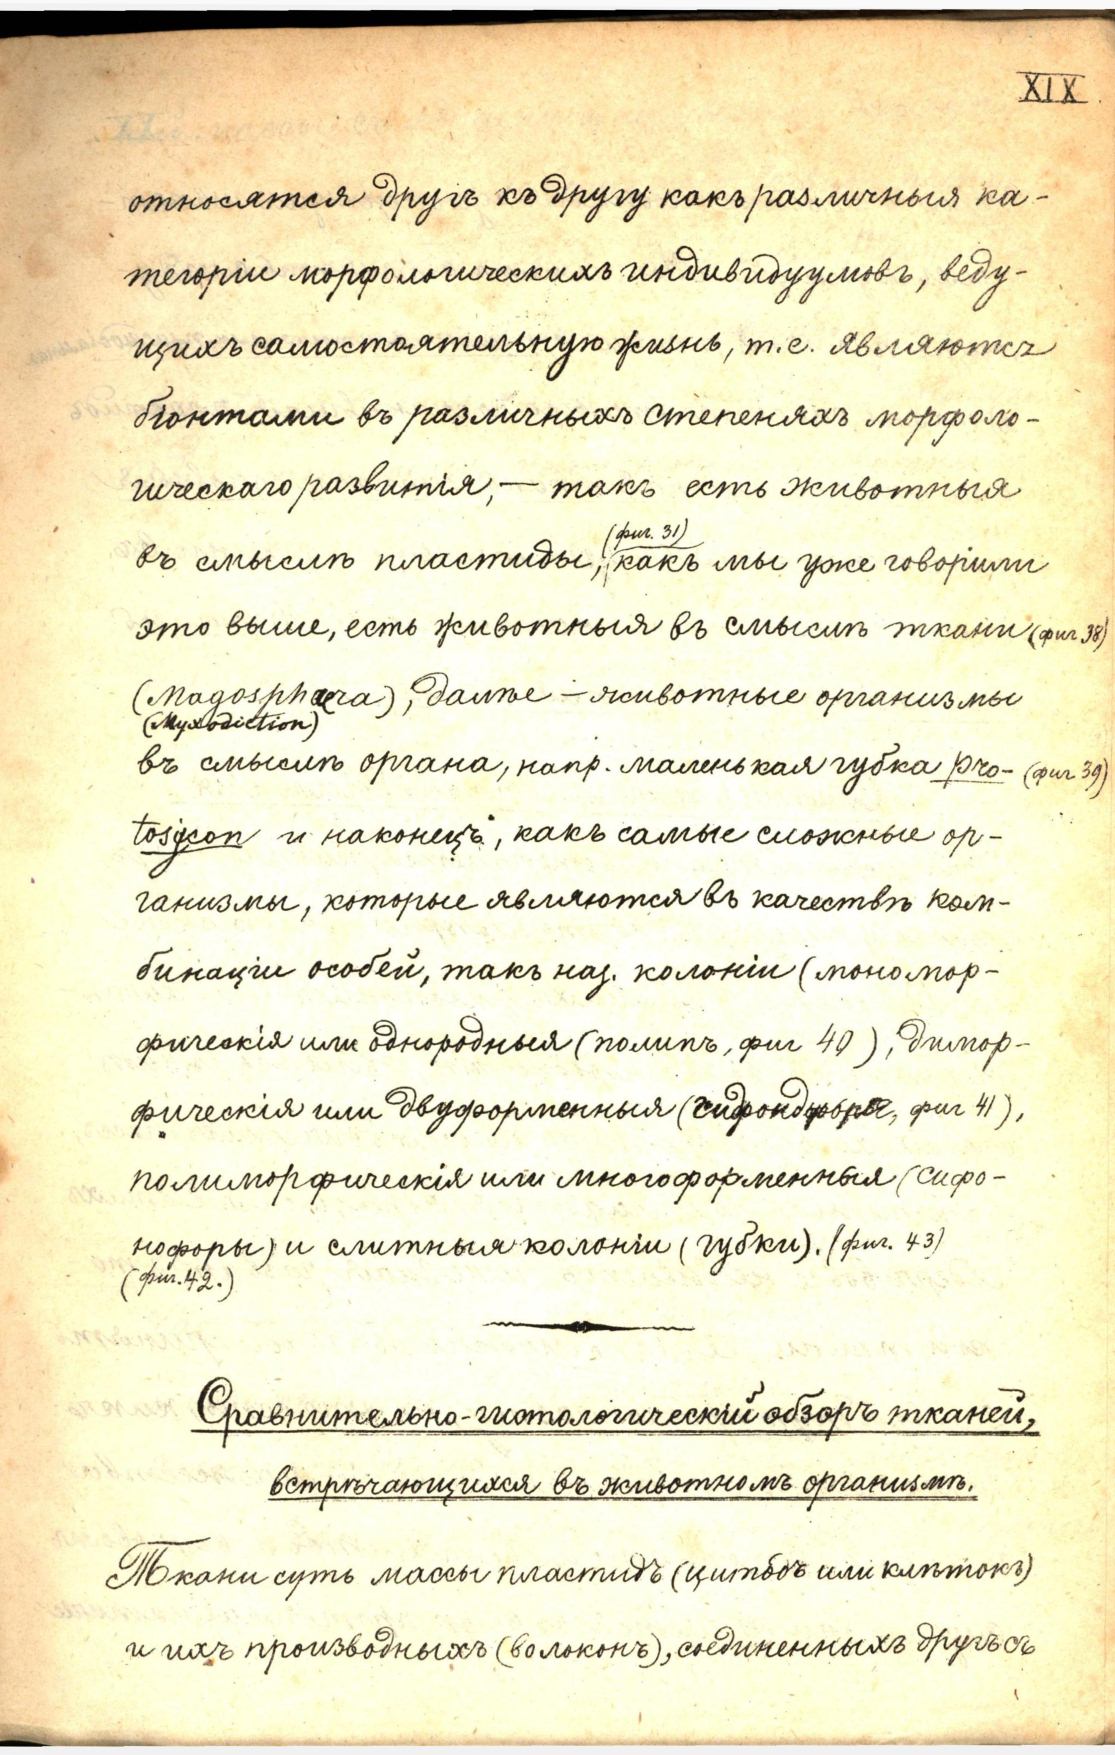 XIX
относятся другъ къ другу какъ различныя ка-
тегоріи морфологическихъ индивидуумовъ, веду-
щихъ самостоятельную жизнь, т.е. являются
біонтами въ различныхъ степеняхъ морфоло-
гическаго развитія, — такъ есть животныя
(фиг. 31)
въ смыслѣ пластиды, какъ мы уже говорили
это выше, есть животныя въ смыслѣ ткани (фиг 38)
(Magosphaera), далѣе — животные организмы
(Myxodiction)
въ смыслѣ органа, напр. маленькая губка pro- (фиг 39)
tosycon и наконецъ, какъ самые сложные ор-
ганизмы, которые являются въ качествѣ ком-
бинаціи особей, такъ наз. колоніи (мономор-
фическія или однородныя (полипъ, фиг 40), димор-
фическія или двуформенныя (фиг 41),
полиморфическія или многоформенныя (сифо-
нофоры) и слитныя колоніи (губки). (фиг. 43)
(фиг. 42.)
Сравнительно-гистологическій обзоръ тканей,
встрѣчающихся въ животномъ организмѣ.
Ткани суть массы пластидъ (цитодъ или клѣтокъ)
и ихъ производныхъ (волоконъ), соединенныхъ другъ съ